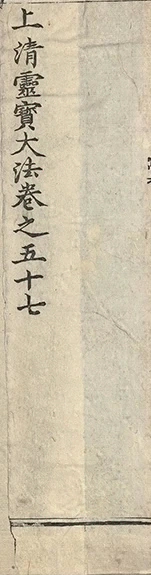 上清靈寶大法卷之五十七